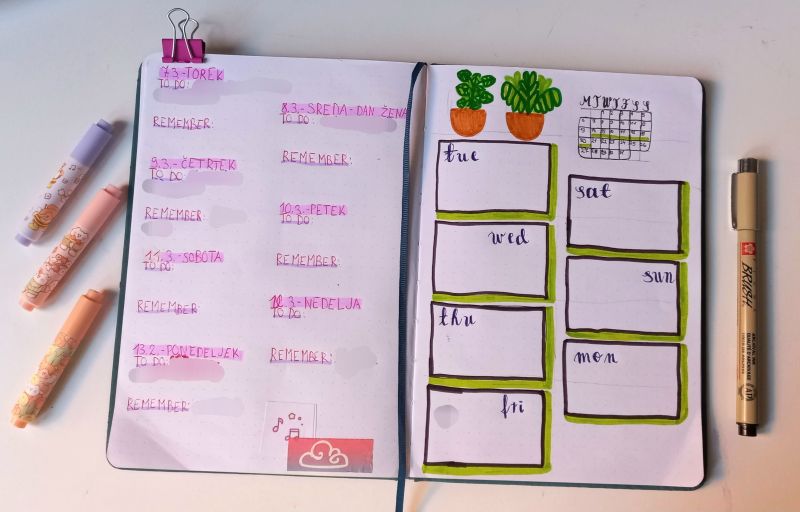 7.3.-TOREK
TO DO:
REMEMBER:
8.3.-SREDA-DAN ŽENA
TO DO:
REMEMBER:
9.3.-ČETRTEK
TO DO:
REMEMBER:
10.3.-PETEK
TO DO:
REMEMBER:
11.3.-SOBOTA
TO DO:
REMEMBER:
12.3-NEDELJA
TO DO:
REMEMBER:
13.2.-PONEDELJEK
TO DO:
REMEMBER:
M T W T F S S
tue
wed
thu
fri
sat
sun
mon
BRUSH